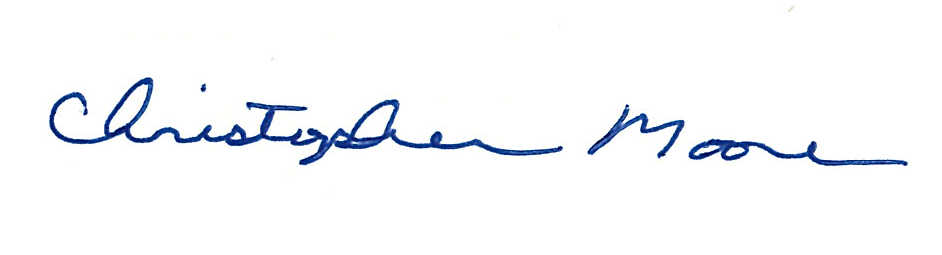 Christopher Moore